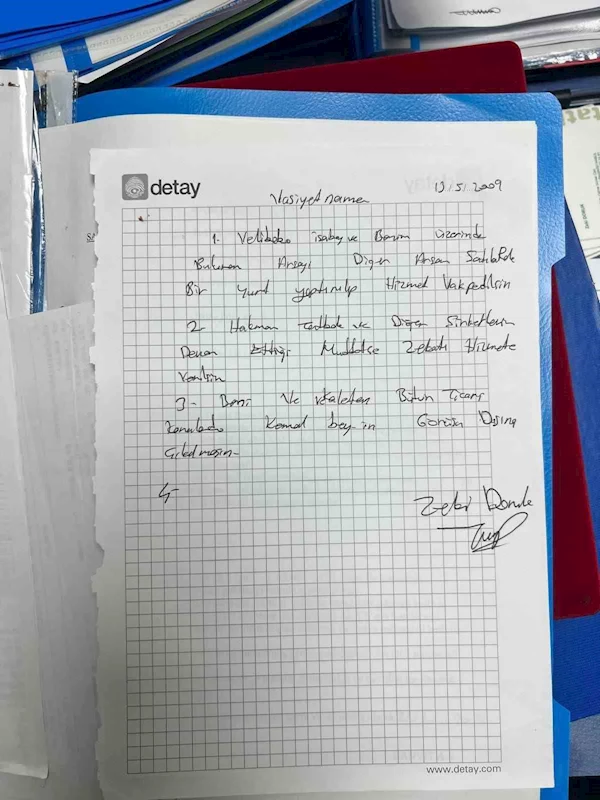 detay
13.5.2009
Vasiyetname
1. Velibaba isabey ve Benim üzerimde
Bulunan Arsayı Diğer Arsam Satılıp
Bir yurt yaptırılıp Hizmet Vakfedilsin
2- Hakman ve Diğer Şirketlerim
Devam Ettiği Müddetçe Zekatı Hizmete
Verilsin
3- Beni Ve vekaleten Bütün Ticari
konularda Kemal bey-in Görüşü Dışına
Çıkılmasın-
4-
Zeki
www.detay.com